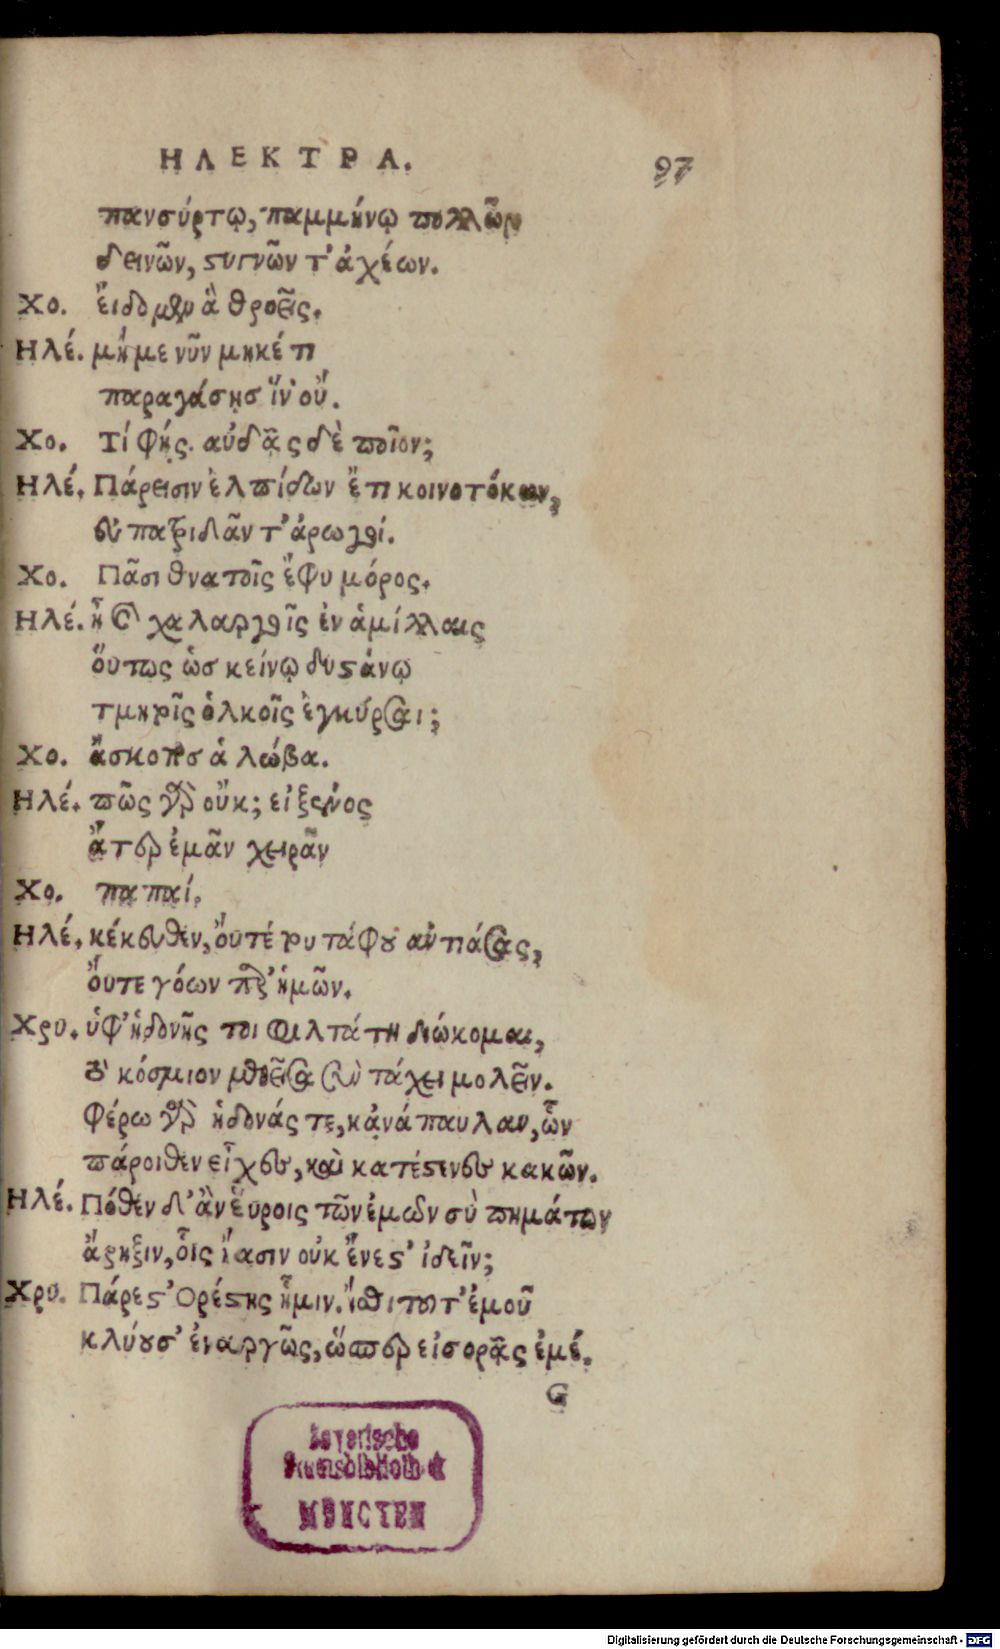 ΗΛΕΚΤΡΑ. 97
πανσύρτῳ, παμμήνῳ πολλῶν
δεινῶν, στυγνῶν τ' ἀχέων.
Χο. εἴδομεν ἃ θροεῖς.
Ηλέ. μή με νῦν μηκέτι
παραγάσησ ἵν' οὔ.
Χο. Τί φής. αὐδᾷς δὲ ποῖον;
Ηλέ. Πάρεισιν ἐλπίδων ἔτι κοινοτόκων,
εὐπατριδᾶν τ' ἀρωγαί.
Χο. Πᾶσι θνατοῖς ἔφυ μόρος.
Ηλέ. ἦ καὶ χαλαργαῖς ἐν ἁμίλλαις
οὕτως ὡσ κείνῳ δυστάνῳ
τμητοῖς ὁλκοῖς ἐγκύρσαι;
Χο. ἄσκοπος ἁ λώβα.
Ηλέ. πῶς γὰρ οὔκ; εἰ ξένος
ἄτερ ἐμᾶν χειρᾶν
Χο. παπαί.
Ηλέ. κέκευθεν, οὔτέ του τάφου ἀντιάσας,
οὔτε γόων παρ' ἡμῶν.
Χρυ. ὑφ' ἡδονῆς τοι φιλτάτη διώκομαι,
τὸ κόσμιον μεθεῖσα σὺν τάχει μολεῖν.
φέρω γὰρ ἡδονάς τε, κἀνάπαυλαν, ὧν
πάροιθεν εἶχες, καὶ κατέστενες κακῶν.
Ηλέ. Πόθεν δ' ἂν εὕροις τῶν ἐμῶν σὺ πημάτων
ἄρηξιν, οἷς ἴασιν οὐκ ἔνεστ' ἰδεῖν;
Χρυ. Πάρεστ' Ὀρέστης ἧμιν. ἴσθι τοῦτ' ἐμοῦ
κλύουσ' ἐναργῶς, ὥσπερ εἰσορᾷς ἐμέ.
G
Bayerische
Staatsbibliothek
MÜNCHEN
Digitalisierung gefördert durch die Deutsche Forschungsgemeinschaft - DFG